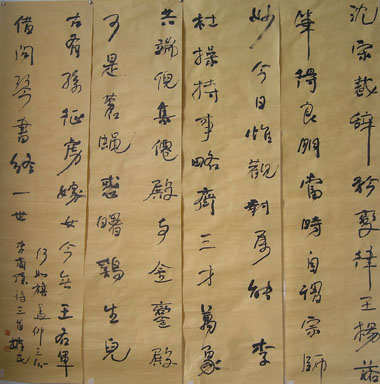 沈宋裁辭矜變律王楊落
筆得良朋當時自謂宗師
妙今日惟觀對屬能李
杜操持事略齊三才萬象
共端倪集僊殿与金鑾殿
可是蒼蠅惑曙鷄生兒
古有孫征虜嫁女今无王右軍
借問琴書終一世
何如旗蓋仰三分
李商隱詩三首